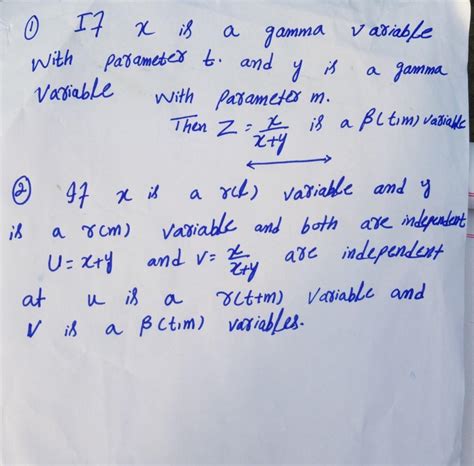 ① If x is a gamma variable
with parameter t. and y is a gamma
variable with parameter m.
Then Z = x/x+y is a β(t,m) variable
② If x is a γ(t) variable and y
is a γ(m) variable and both are independent
U = x+y and v = x/x+y are independent
at u is a γ(t+m) variable and
V is a β(t,m) variables.